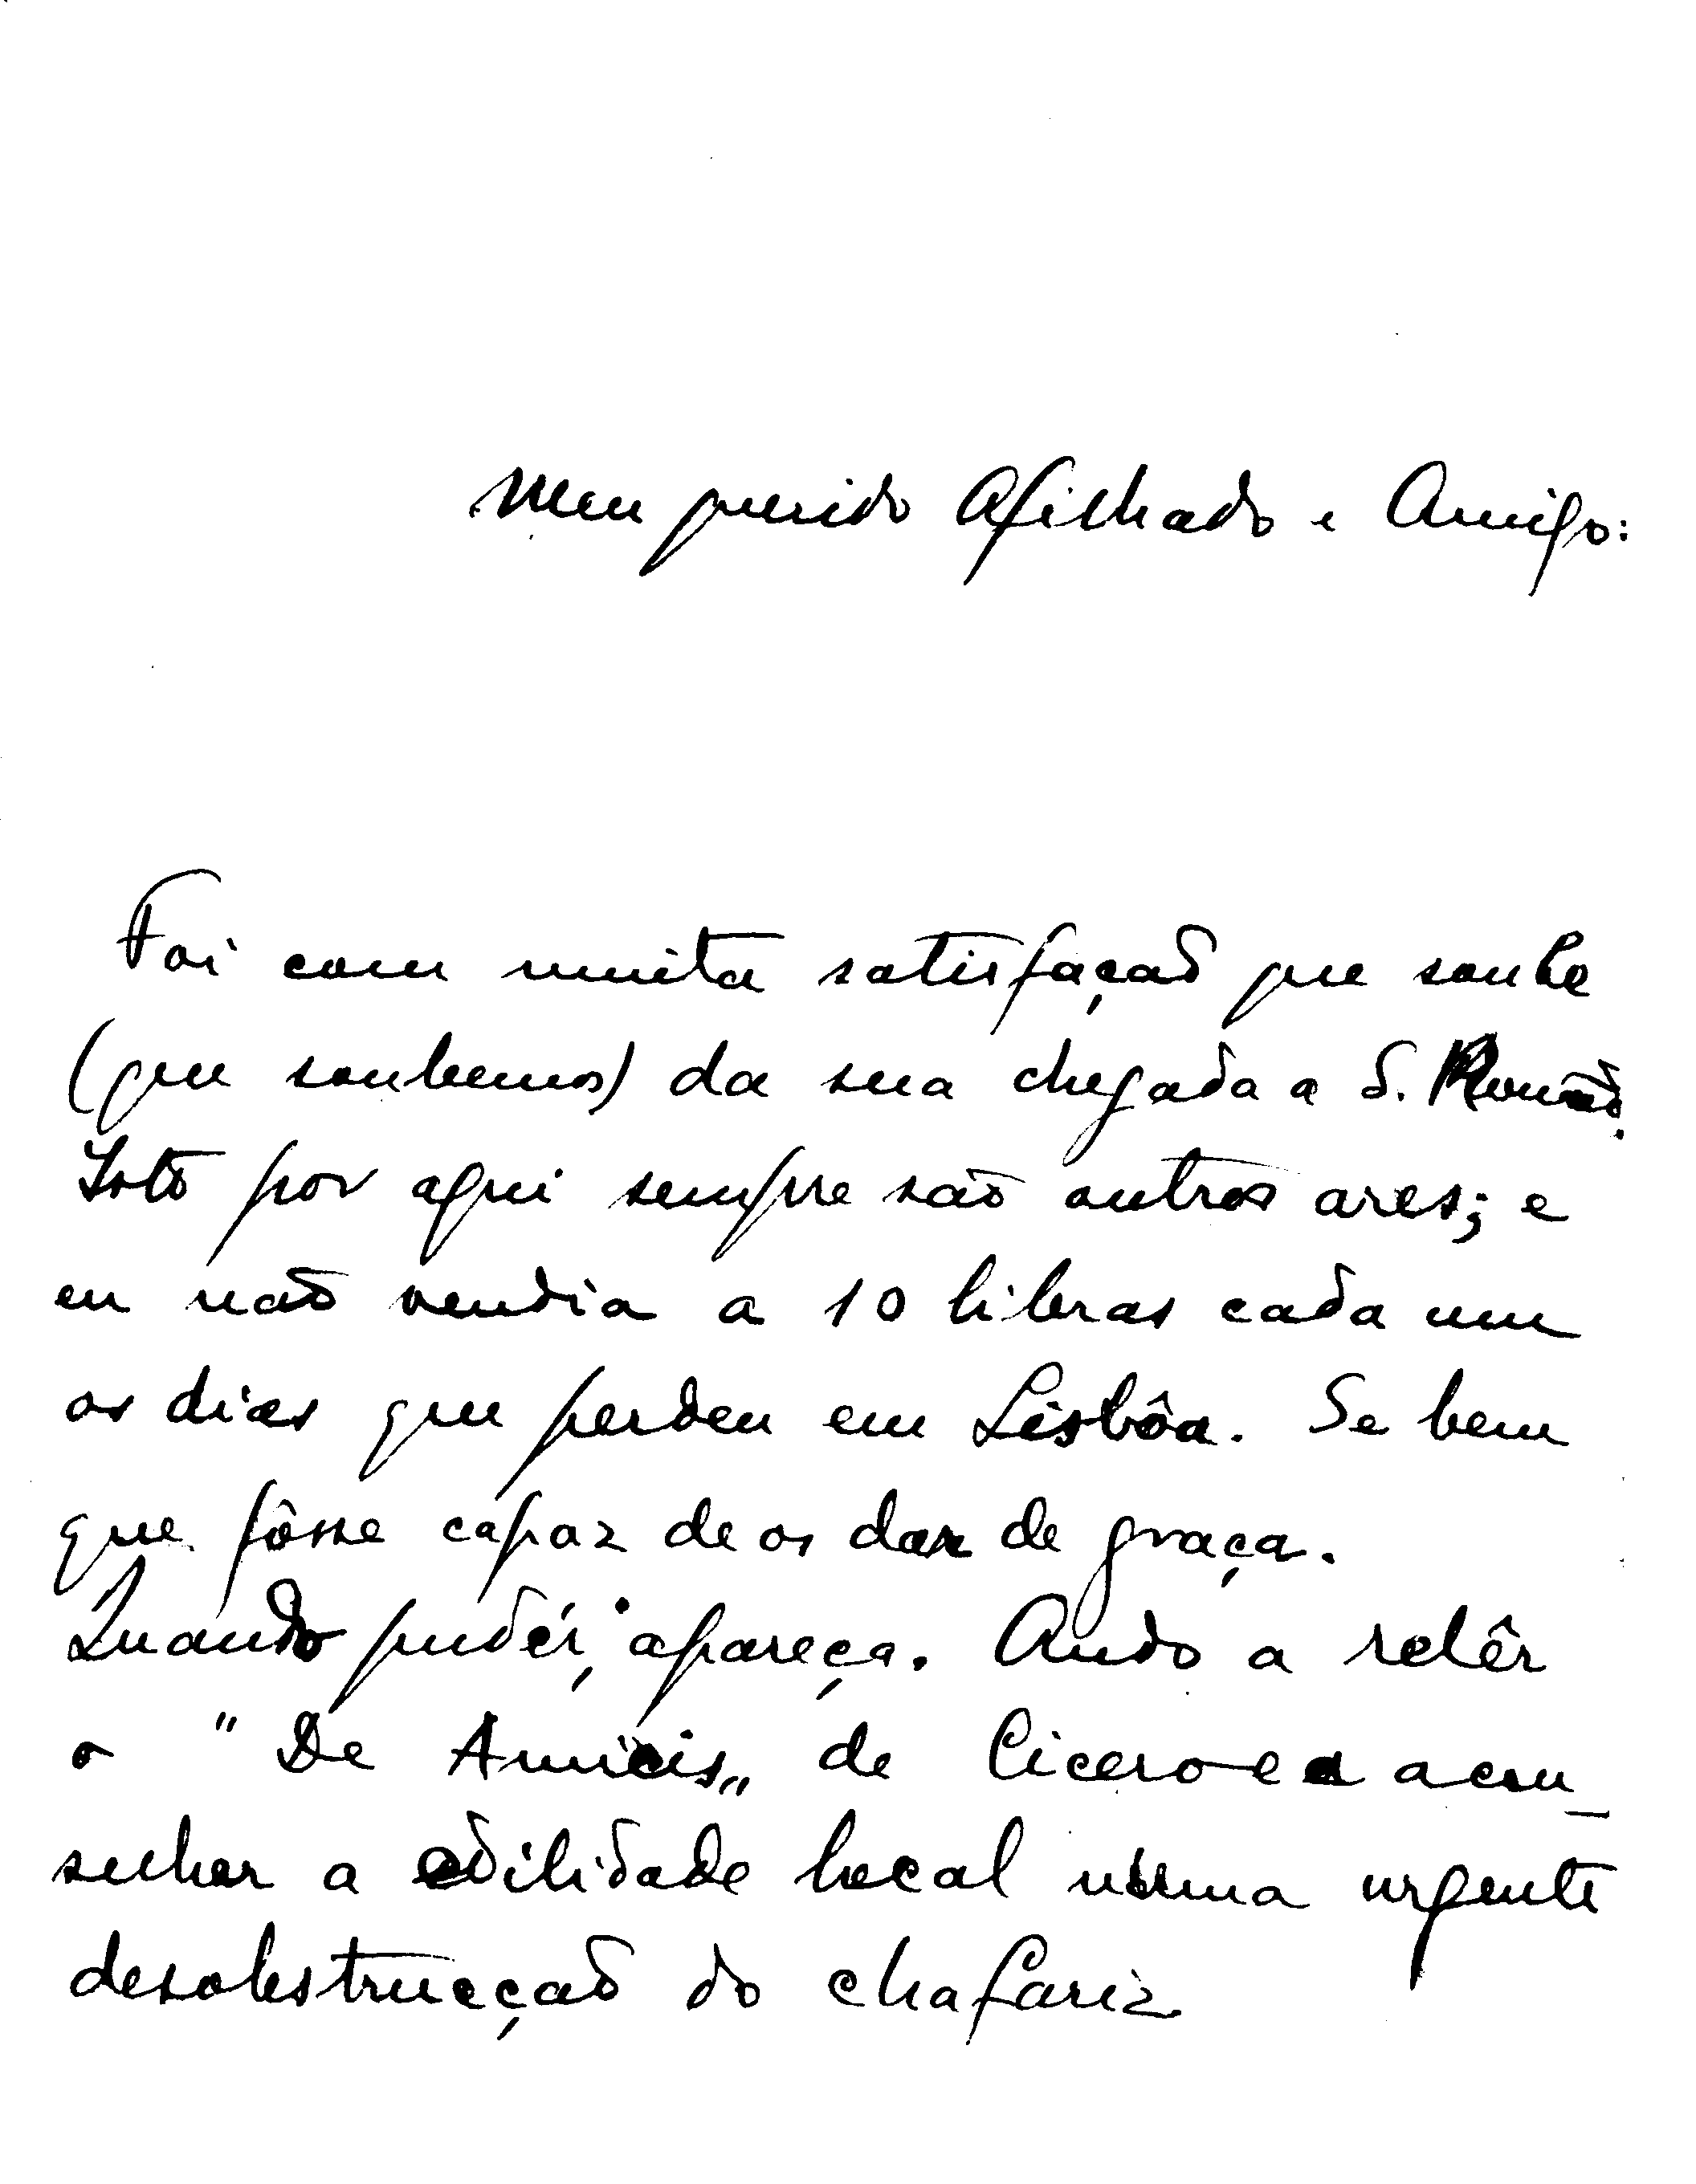 Meu querido Afilhado e Amigo:
Foi com muita satisfação que soube
(que soubemos) da sua chegada a S. Romão.
Isto por aqui sempre são outros ares; e
eu não vendia a 10 libras cada um
os dias que perdeu em Lisbôa. Se bem
que fôsse capaz de os dar de graça.
Quando pudér, apareça. Ando a relêr
o "De Amicis" de Cicero e a acon-
selhar a edilidade local numa urgente
desobstrucção do chafariz.